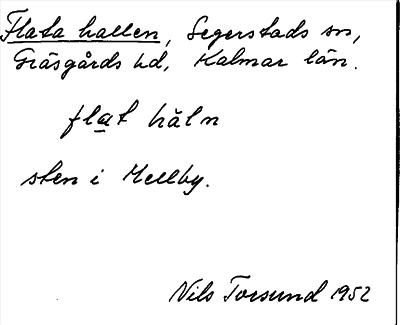 Flata hallen, Segerstads sn,
Gräsgårds hd, Kalmar län.
flat häln
sten i Mellby.
Nils Torsund 1952